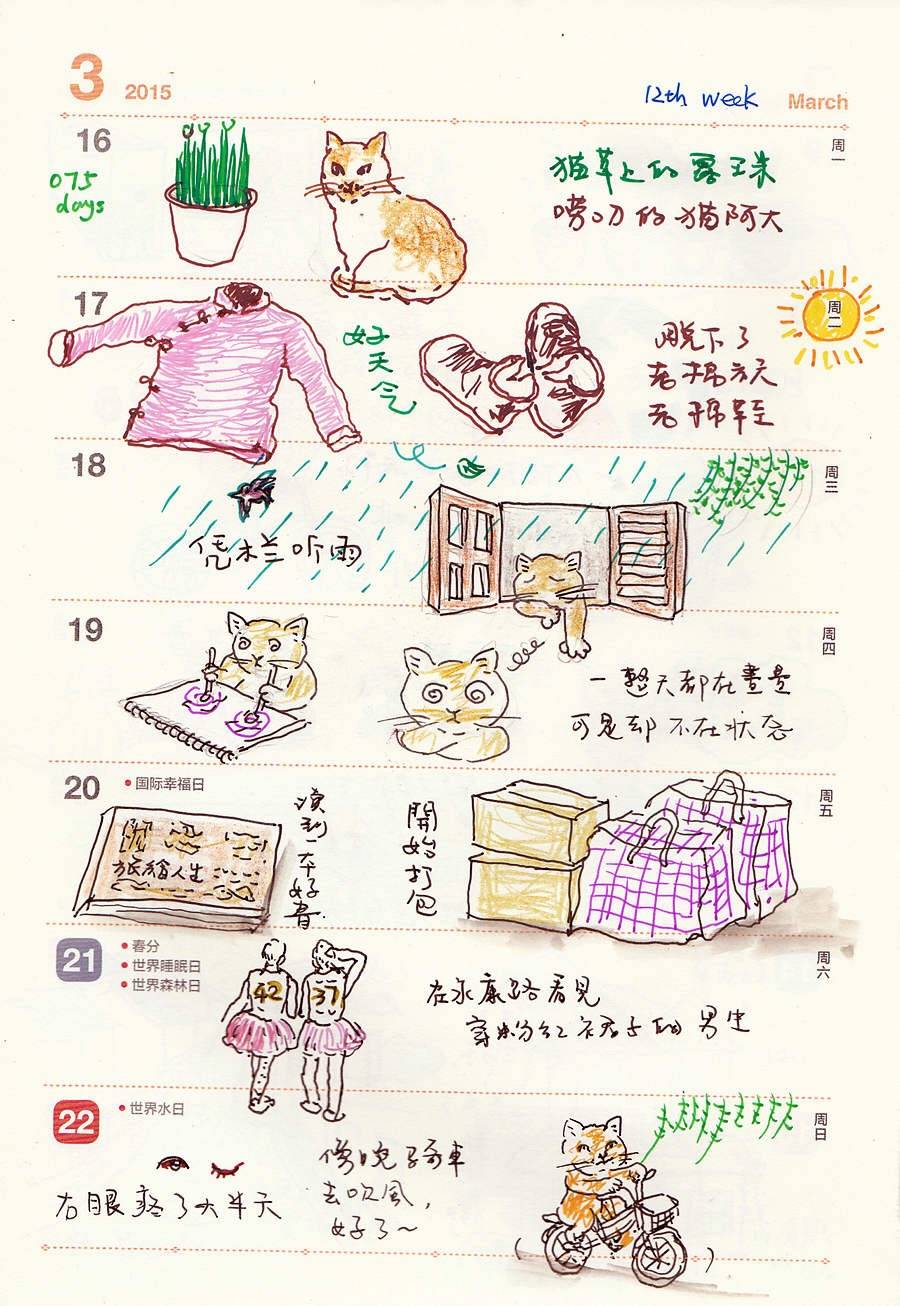 3 2015
12th week March
16 周一
075
days
猫草上的露珠
嘮叨的猫阿大
17 周二
好天气
脱下了
老棉衣
老棉鞋
18 周三
凭栏听雨
19 周四
一整天都在畫畫
可是却不在状态
20 • 国际幸福日 周五
旅绘人生
讀到一本好書
開始打包
21 • 春分 周六
• 世界睡眠日
• 世界森林日
42 37
在永康路看見
穿粉红裙子的男生
22 • 世界水日 周日
右眼疼了大半天
傍晚骑車
去吹風，
好了～